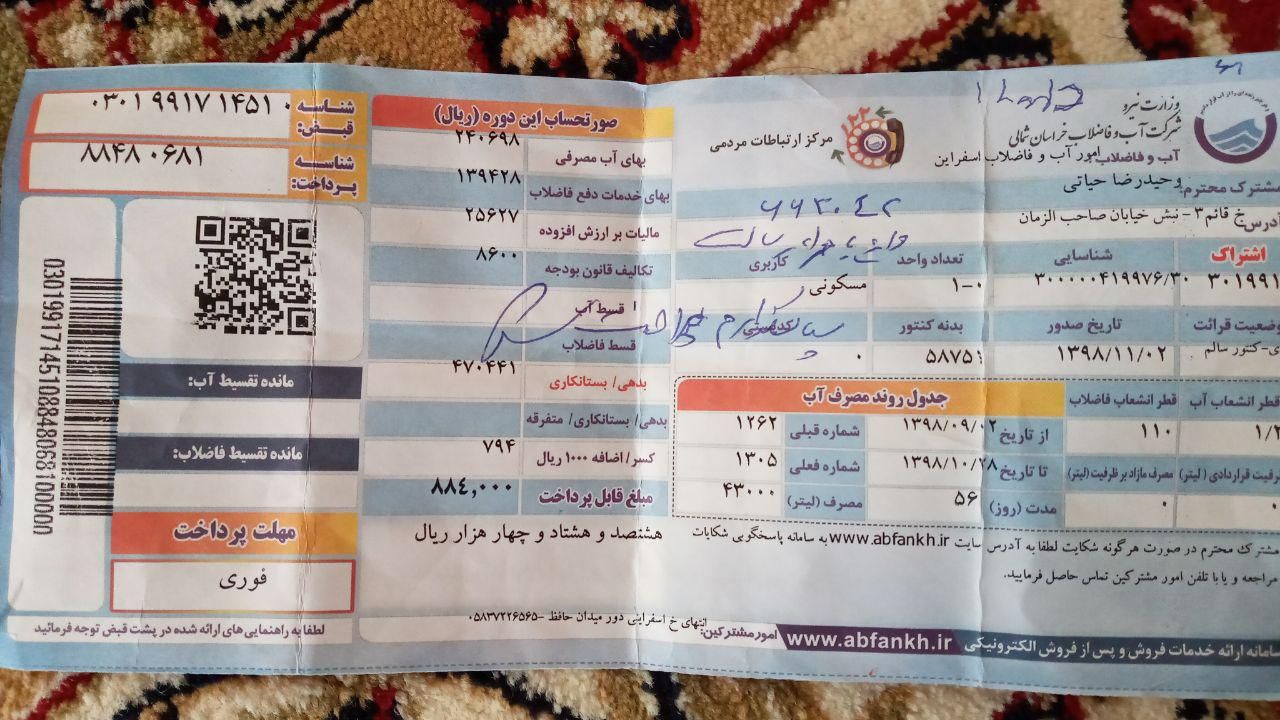 وزارت نیرو
شرکت آب و فاضلاب خراسان شمالی
آب و فاضلاب: امور آب و فاضلاب اسفراین
۱۲۲
مرکز ارتباطات مردمی
مشترک محترم: وحیدرضا حیاتی
آدرس: خ قائم ۳ - نبش خیابان صاحب الزمان
۶۶۳۰۴۲
اشتراک شناسایی تعداد واحد کاربری
۳۰۱۹۹۱ ۳۰۰۰۰۰۴۱۹۹۷۶/۳۰ ۱-۰ مسکونی
وضعیت قرائت تاریخ صدور بدنه کنتور
عادی-کنتور سالم ۱۳۹۸/۱۱/۰۲ ۵۸۷۵۱ ۰
قطر انشعاب آب قطر انشعاب فاضلاب
۱/۲ ۱۱۰
ظرفیت قراردادی (لیتر) مصرف مازاد بر ظرفیت (لیتر)
۰ ۰
جدول روند مصرف آب
از تاریخ ۱۳۹۸/۰۹/۰۲ شماره قبلی ۱۲۶۲
تا تاریخ ۱۳۹۸/۱۰/۲۸ شماره فعلی ۱۳۰۵
مدت (روز) ۵۶ مصرف (لیتر) ۴۳۰۰۰
مشترک محترم در صورت هرگونه شکایت لطفا به آدرس سایت www.abfankh.ir به سامانه پاسخگویی شکایات
مراجعه و یا با تلفن امور مشترکین تماس حاصل فرمایید.
سامانه ارائه خدمات فروش و پس از فروش الکترونیکی www.abfankh.ir
امور مشترکین: انتهای خ اسفراینی دور میدان حافظ -۰۵۸۳۷۲۲۶۵۶۵
صورتحساب این دوره (ریال)
بهای آب مصرفی ۲۴۰۶۹۸
بهای خدمات دفع فاضلاب ۱۳۹۴۲۸
مالیات بر ارزش افزوده ۲۵۶۲۷
تکالیف قانون بودجه ۸۶۰۰
قسط آب
قسط فاضلاب
بدهی/ بستانکاری ۴۷۰۴۴۱
بدهی/ بستانکاری/ متفرقه
کسر/ اضافه ۱۰۰۰ ریال ۷۹۴
مبلغ قابل پرداخت ۸۸۴,۰۰۰
هشتصد و هشتاد و چهار هزار ریال
شناسه قبض: ۰۳۰۱۹۹۱۷۱۴۵۱۰
شناسه پرداخت: ۸۸۴۸۰۶۸۱
03019917145108848068100000
مانده تقسیط آب:
مانده تقسیط فاضلاب:
مهلت پرداخت
فوری
لطفا به راهنمایی های ارائه شده در پشت قبض توجه فرمائید